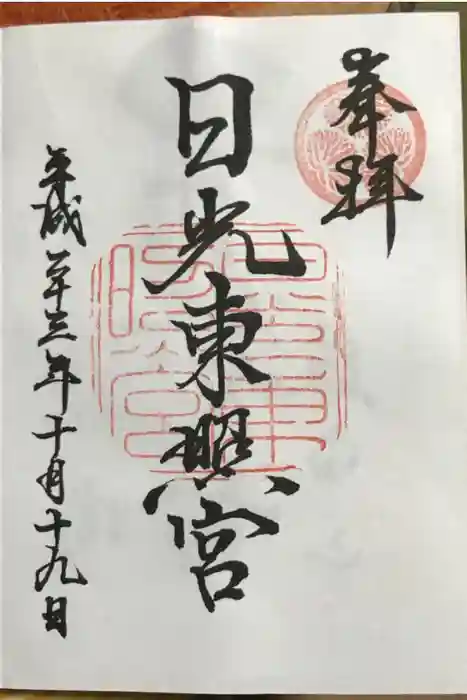 奉拝
日光東照宮
平成二十三年十月十九日